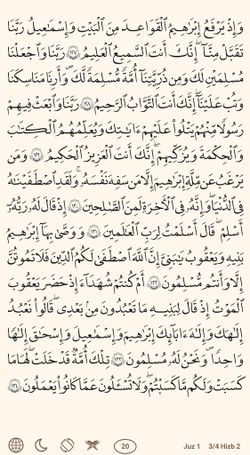 وَإِذْ يَرْفَعُ إِبْرَٰهِـۧمُ ٱلْقَوَاعِدَ مِنَ ٱلْبَيْتِ وَإِسْمَـٰعِيلُ رَبَّنَا
تَقَبَّلْ مِنَّآ ۖ إِنَّكَ أَنتَ ٱلسَّمِيعُ ٱلْعَلِيمُ ١٢٧ رَبَّنَا وَٱجْعَلْنَا
مُسْلِمَيْنِ لَكَ وَمِن ذُرِّيَّتِنَآ أُمَّةً مُّسْلِمَةً لَّكَ وَأَرِنَا مَنَاسِكَنَا
وَتُبْ عَلَيْنَآ ۖ إِنَّكَ أَنتَ ٱلتَّوَّابُ ٱلرَّحِيمُ ١٢٨ رَبَّنَا وَٱبْعَثْ فِيهِمْ
رَسُولًا مِّنْهُمْ يَتْلُوا۟ عَلَيْهِمْ ءَايَـٰتِكَ وَيُعَلِّمُهُمُ ٱلْكِتَـٰبَ
وَٱلْحِكْمَةَ وَيُزَكِّيهِمْ ۚ إِنَّكَ أَنتَ ٱلْعَزِيزُ ٱلْحَكِيمُ ١٢٩ وَمَن
يَرْغَبُ عَن مِّلَّةِ إِبْرَٰهِـۧمَ إِلَّا مَن سَفِهَ نَفْسَهُۥ ۚ وَلَقَدِ ٱصْطَفَيْنَـٰهُ
فِى ٱلدُّنْيَا ۖ وَإِنَّهُۥ فِى ٱلْـَٔاخِرَةِ لَمِنَ ٱلصَّـٰلِحِينَ ١٣٠ إِذْ قَالَ لَهُۥ رَبُّهُۥٓ
أَسْلِمْ ۖ قَالَ أَسْلَمْتُ لِرَبِّ ٱلْعَـٰلَمِينَ ١٣١ وَوَصَّىٰ بِهَآ إِبْرَٰهِـۧمُ
بَنِيهِ وَيَعْقُوبُ يَـٰبَنِىَّ إِنَّ ٱللَّهَ ٱصْطَفَىٰ لَكُمُ ٱلدِّينَ فَلَا تَمُوتُنَّ
إِلَّا وَأَنتُم مُّسْلِمُونَ ١٣٢ أَمْ كُنتُمْ شُهَدَآءَ إِذْ حَضَرَ يَعْقُوبَ
ٱلْمَوْتُ إِذْ قَالَ لِبَنِيهِ مَا تَعْبُدُونَ مِنۢ بَعْدِى قَالُوا۟ نَعْبُدُ
إِلَـٰهَكَ وَإِلَـٰهَ ءَابَآئِكَ إِبْرَٰهِـۧمَ وَإِسْمَـٰعِيلَ وَإِسْحَـٰقَ إِلَـٰهًا
وَٰحِدًا وَنَحْنُ لَهُۥ مُسْلِمُونَ ١٣٣ تِلْكَ أُمَّةٌ قَدْ خَلَتْ ۖ لَهَا مَا
كَسَبَتْ وَلَكُم مَّا كَسَبْتُمْ ۖ وَلَا تُسْـَٔلُونَ عَمَّا كَانُوا۟ يَعْمَلُونَ ١٣٤
20 Juz 1 3/4 Hizb 2